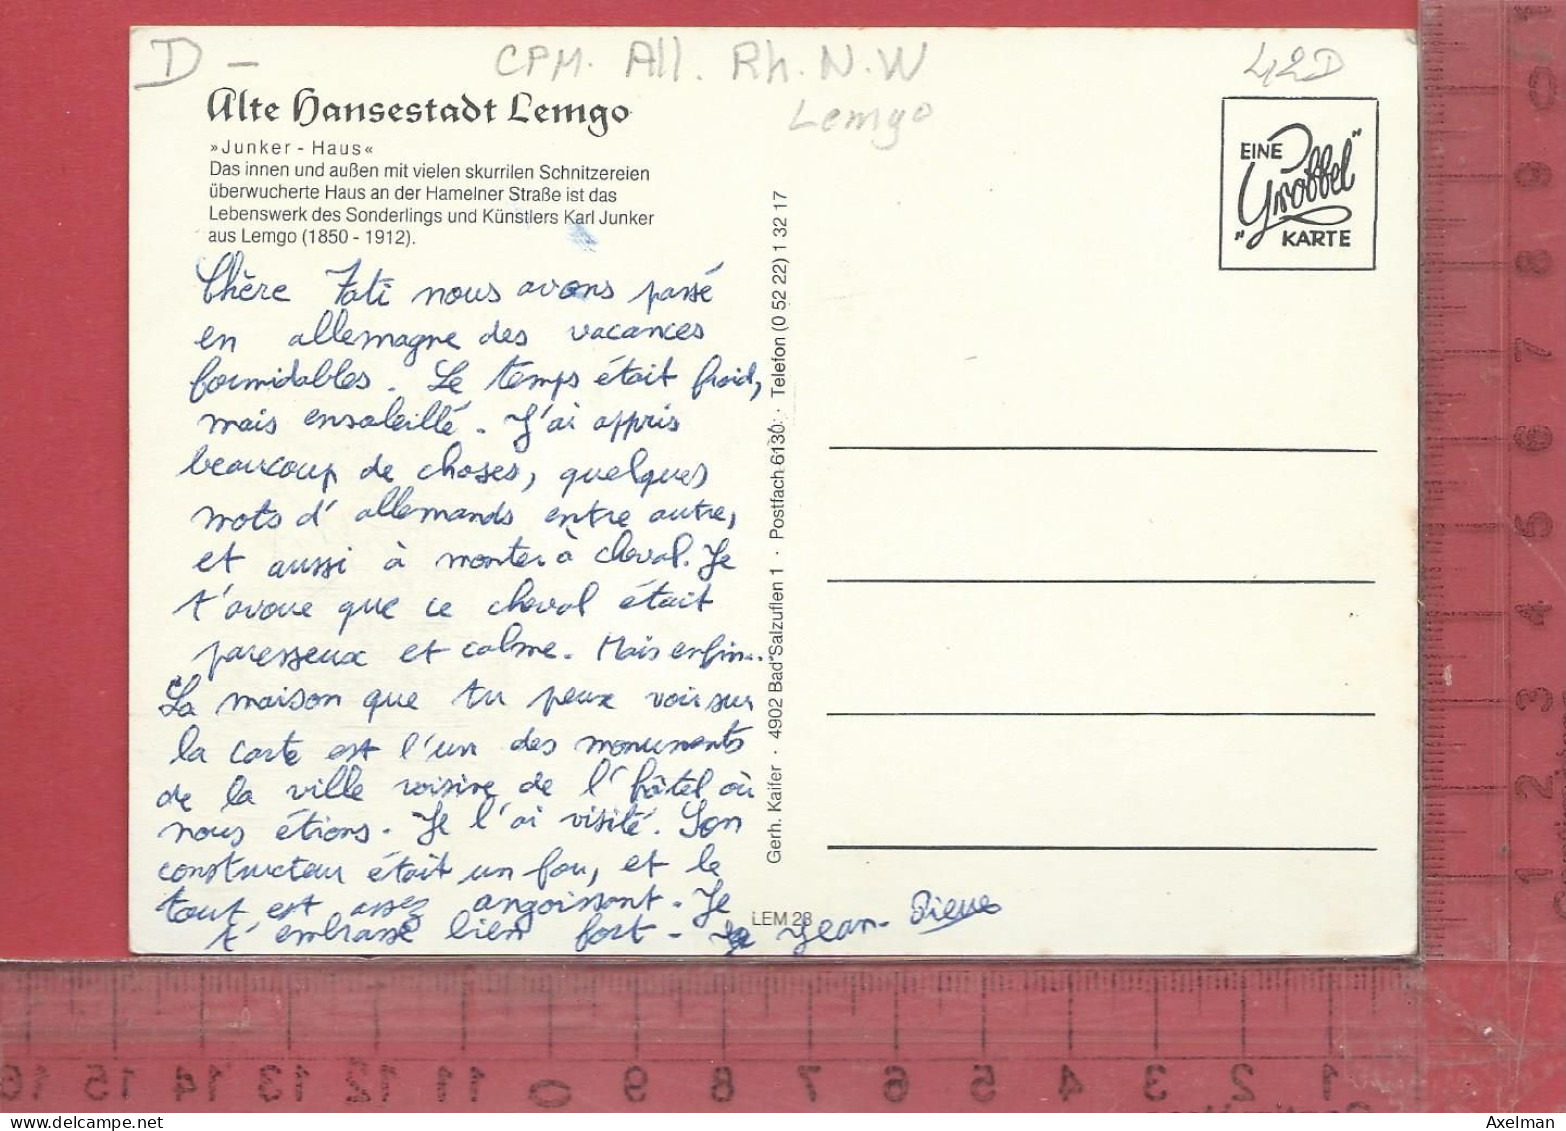 D - CPM. All. Rh. N. W 42D
Lemgo
Alte Hansestadt Lemgo
»Junker - Haus«
Das innen und außen mit vielen skurrilen Schnitzereien
überwucherte Haus an der Hamelner Straße ist das
Lebenswerk des Sonderlings und Künstlers Karl Junker
aus Lemgo (1850 - 1912).
EINE
"Grobbel"
KARTE
Chère Tati nous avons passé
en allemagne des vacances
formidables. Le temps était froid,
mais ensoleillé. J'ai appris
beaucoup de choses, quelques
mots d'allemands entre autre,
et aussi à monter à cheval. Je
t'avoue que ce cheval était
paresseux et calme. Mais enfin...
La maison que tu peux voir sur
la carte est l'un des monuments
de la ville voisine de l'hôtel où
nous étions. Je l'ai visité. Son
constructeur était un fou, et le
tout est assez angoissant. Je
t'embrasse bien fort - Jean-Pierre
Gerh. Kaifer · 4902 Bad Salzuflen 1 · Postfach 6130 · Telefon (0 52 22) 1 32 17
LEM 28
1 2 3 4 5 6 7 8 9 10
16 15 14 13 12 11 0 9 8 7 6 5 4 3 2 1
www.delcampe.net
Axelman